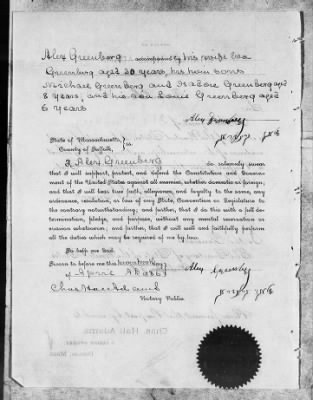 Alex Greenberg accompanied by his wife Eva
Greenberg aged 30 years, his twin sons
Michael Greenberg and Isadore Greenberg aged
8 years, and his son Louis Greenberg aged
6 years
Alex Greenberg
State of Massachusetts,
County of Suffolk. } ss
I Alex Greenberg do solemnly swear
that I will support, protect, and defend the Constitution and Govern-
ment of the United States against all enemies, whether domestic or foreign,
and that I will bear true faith, allegiance, and loyalty to the same, any
ordinance, resolution, or law of any State, Convention or Legislature to
the contrary notwithstanding; and further, that I do this with a full de-
termination, pledge, and purpose, without any mental reservation or
evasion whatsoever; and further, that I will well and faithfully perform
all the duties which may be required of me by law.
So help me God.
Sworn to before me this seventeenth day
of April
Alex Greenberg
Chas Hall Adams
Notary Public.